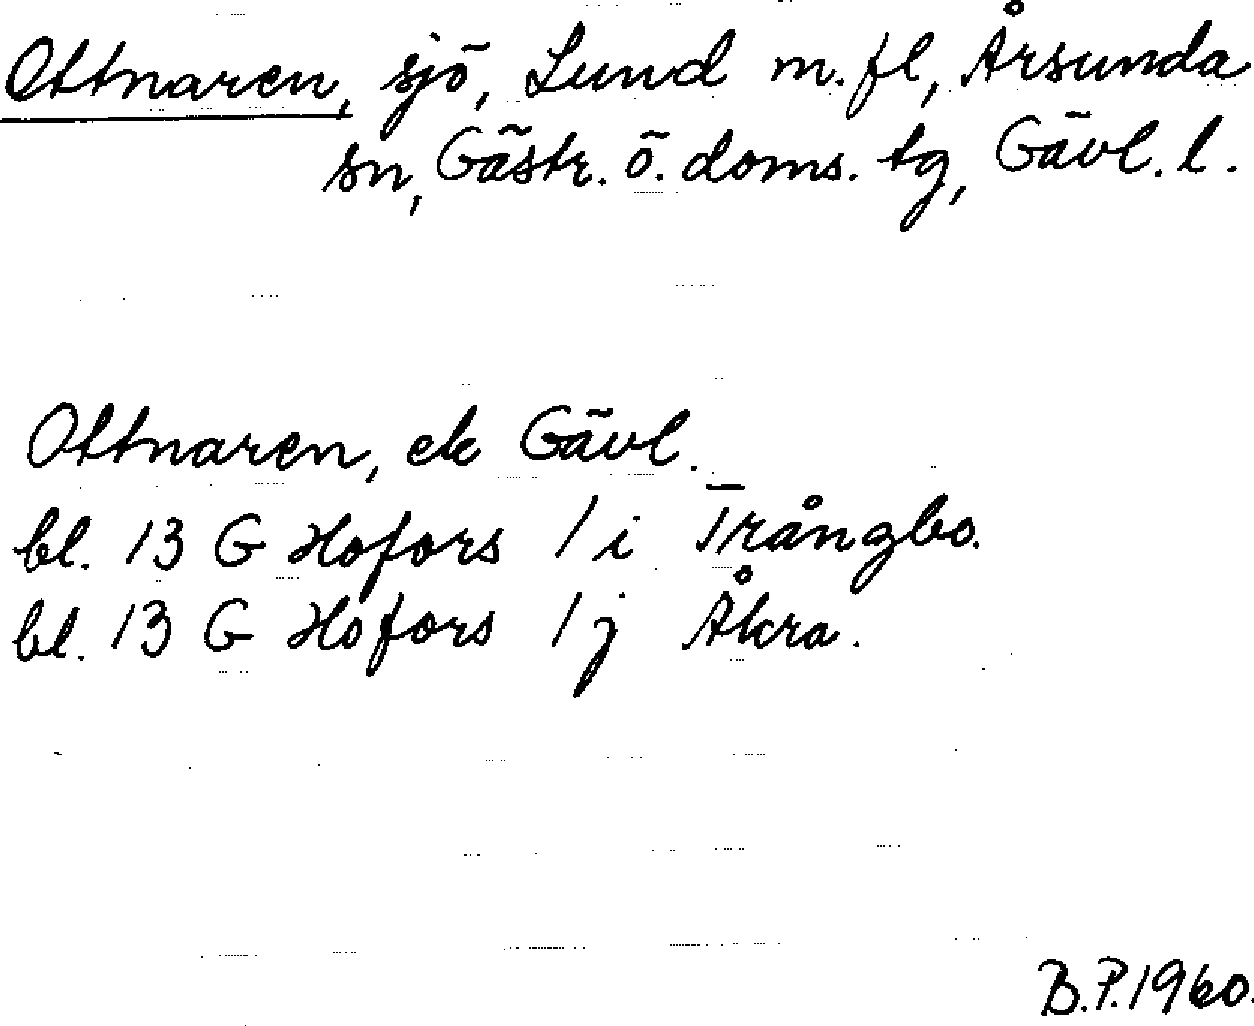 Ottnaren, sjö, Lund m.fl, Årsunda
sn, Gästr. ö. doms. tg, Gävl. l.
Ottnaren, ek Gävl.
bl. 13 G Hofors 1 i Trångbo.
bl. 13 G Hofors 1 j Åkra.
B.P. 1960.